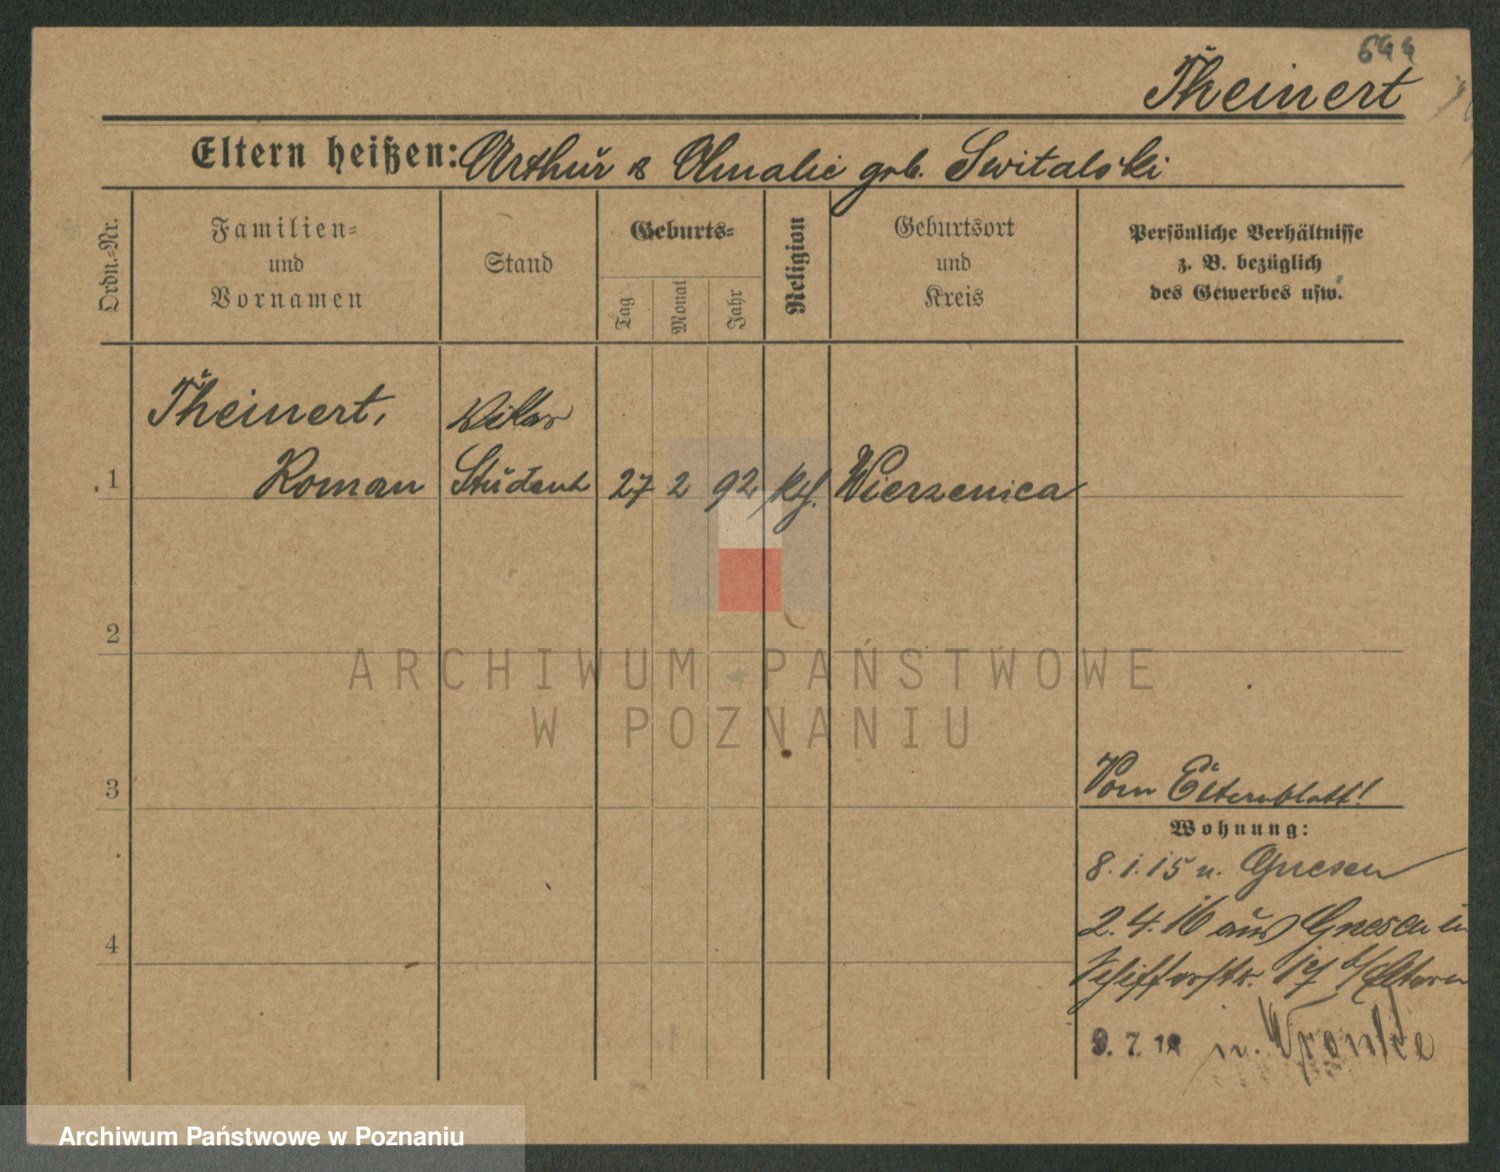 644
Theinert
Eltern heißen: Arthur & Amalie geb. Switalski
Ordn.-Nr.
Familien-
und
Vornamen
Stand
Geburts-
Tag
Monat
Jahr
Religion
Geburtsort
und
Kreis
Persönliche Verhältnisse
z. B. bezüglich
des Gewerbes usw.
Theinert,
Vikar
1 Roman Student 27 2 92 kth. Wierzenica
2
ARCHIWUM PAŃSTWOWE
W POZNANIU
3
Vom Elternblatt!
Wohnung:
8.1.15 n. Gnesen
2.4.16 aus Gnesen in
4
Schifferstr. b/Eltern
9.7.18 n. Wronke
Archiwum Państwowe w Poznaniu